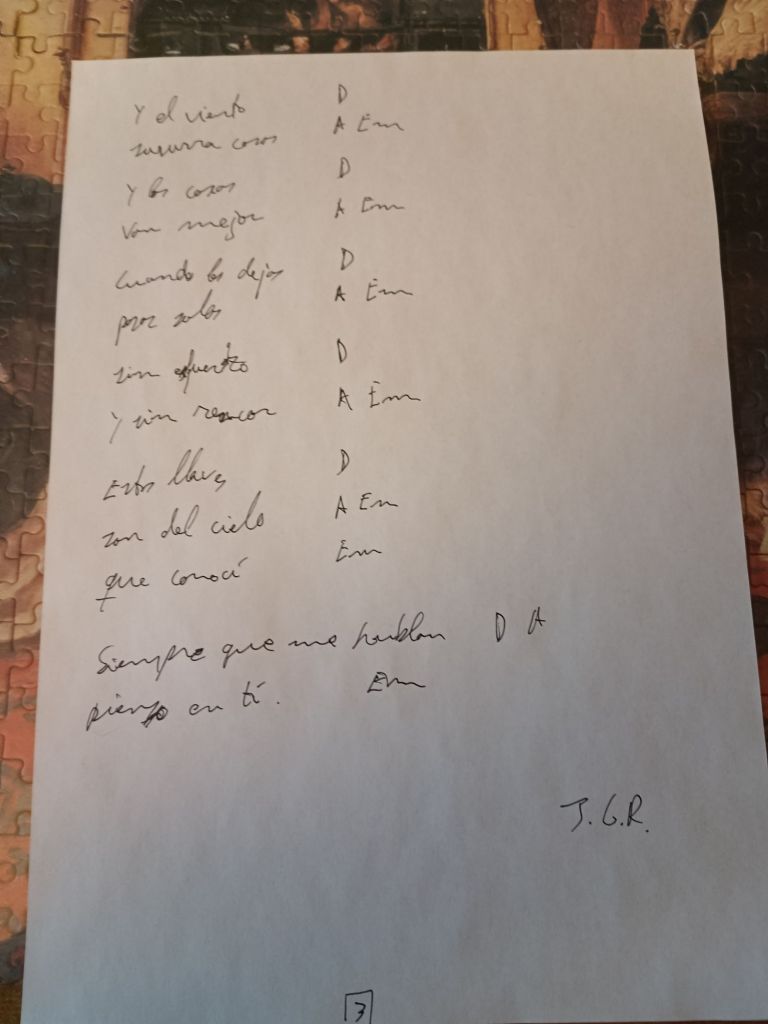 Y el viento D
susurra cosas A Em
Y las cosas D
van mejor A Em
cuando las dejas D
pasar solas A Em
sin esfuerzo D
Y sin rencor A Em
Estas llaves D
son del cielo A Em
que conocí Em
Siempre que me hablan D A
pienso en tí. Em
J.G.R.
3